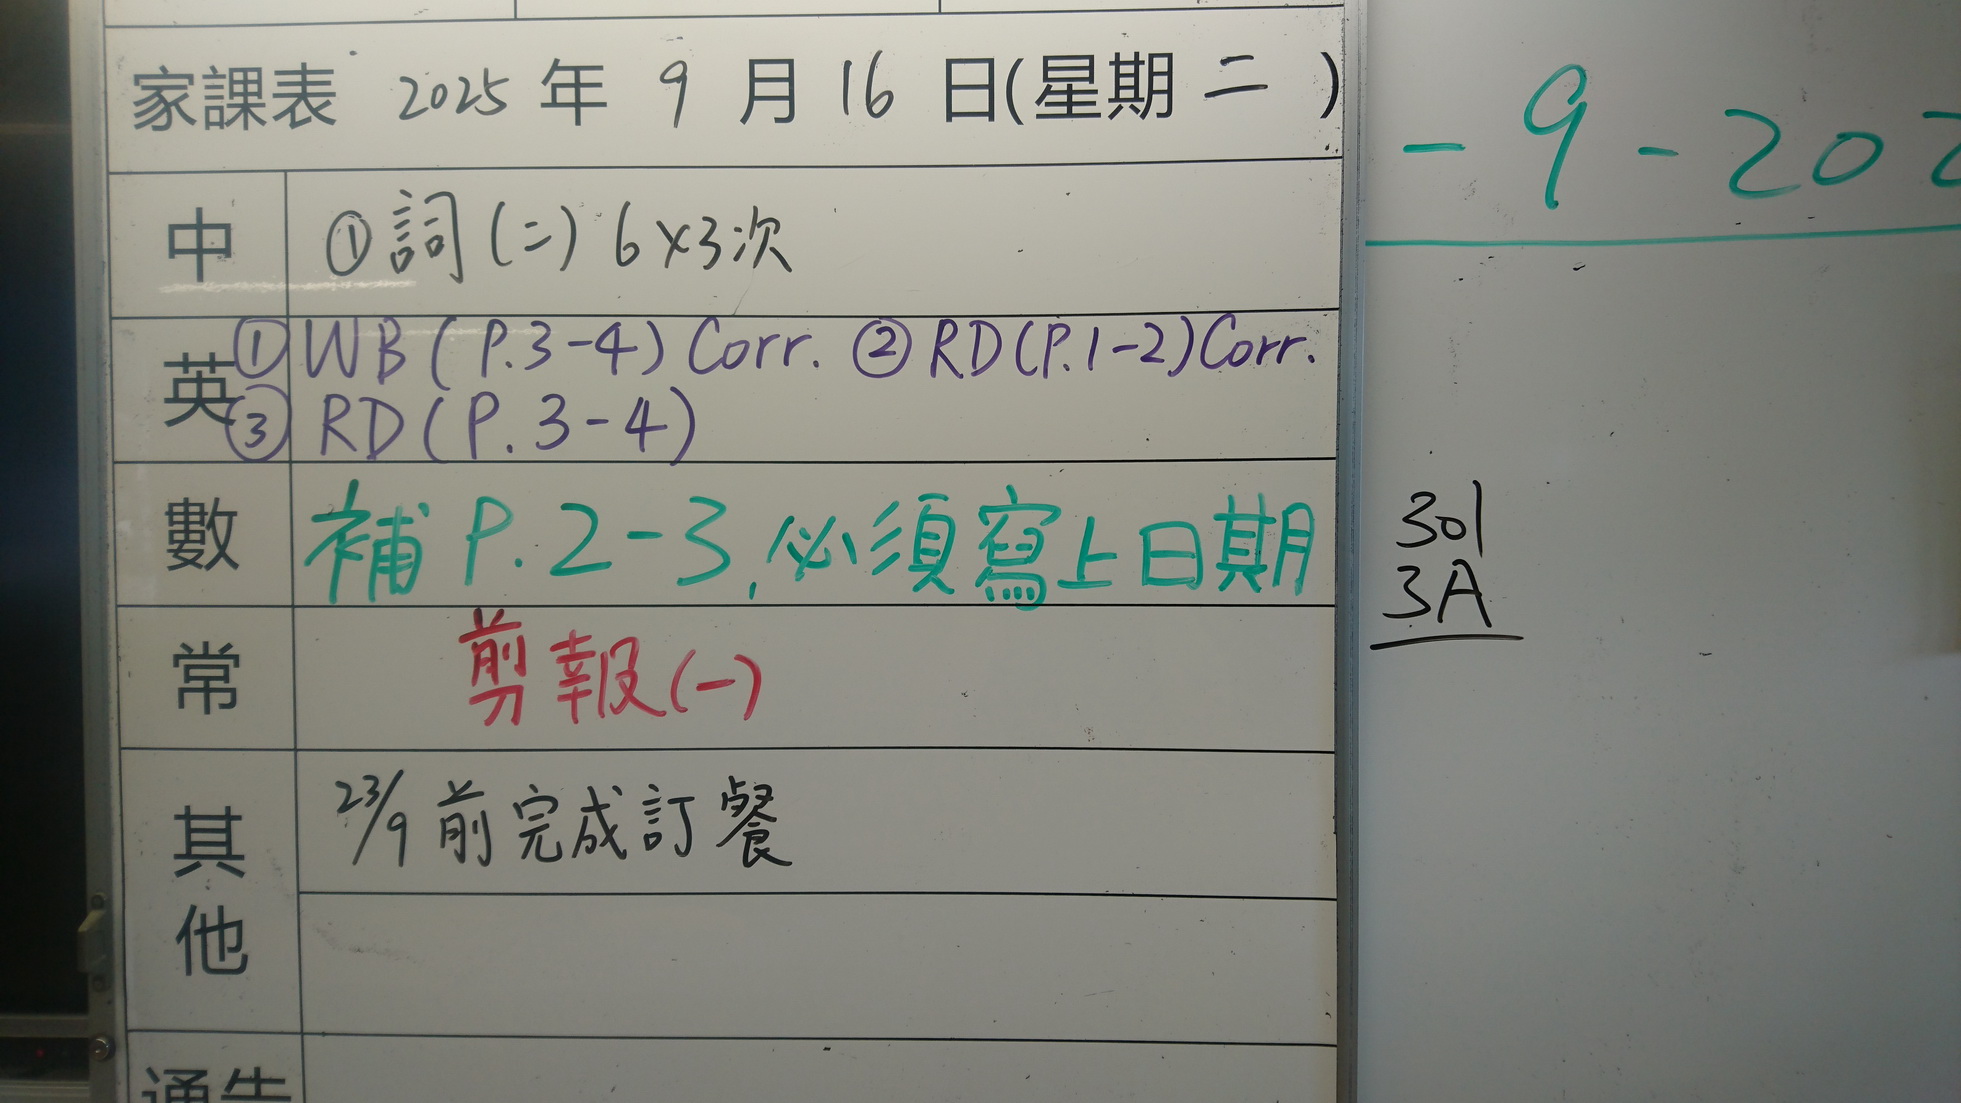 家課表 2025 年 9 月 16 日(星期 二 )
中 ①詞(二) 6×3次
英 ① WB (P.3-4) Corr. ② RD (P.1-2) Corr.
③ RD (P.3-4)
數 補 P.2-3, 必須寫上日期
常 剪報(一)
其他 23/9 前完成訂餐
通告
- 9 - 202
301
3A